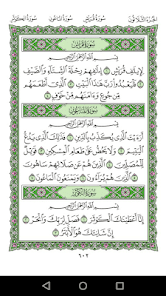 سُورَةُ قُرَيْشٍ
بِسْمِ ٱللَّهِ ٱلرَّحْمَٰنِ ٱلرَّحِيمِ
لِإِيلَٰفِ قُرَيْشٍ ١ إِۦلَٰفِهِمْ رِحْلَةَ ٱلشِّتَآءِ وَٱلصَّيْفِ
٢ فَلْيَعْبُدُوا۟ رَبَّ هَٰذَا ٱلْبَيْتِ ٣ ٱلَّذِىٓ أَطْعَمَهُم
مِّن جُوعٍ وَءَامَنَهُم مِّنْ خَوْفٍۭ ٤
سُورَةُ المَاعُونِ
بِسْمِ ٱللَّهِ ٱلرَّحْمَٰنِ ٱلرَّحِيمِ
أَرَءَيْتَ ٱلَّذِى يُكَذِّبُ بِٱلدِّينِ ١ فَذَٰلِكَ ٱلَّذِى يَدُعُّ
ٱلْيَتِيمَ ٢ وَلَا يَحُضُّ عَلَىٰ طَعَامِ ٱلْمِسْكِينِ ٣ فَوَيْلٌ
لِّلْمُصَلِّينَ ٤ ٱلَّذِينَ هُمْ عَن صَلَاتِهِمْ سَاهُونَ ٥
ٱلَّذِينَ هُمْ يُرَآءُونَ ٦ وَيَمْنَعُونَ ٱلْمَاعُونَ ٧
سُورَةُ الكَوْثَرِ
بِسْمِ ٱللَّهِ ٱلرَّحْمَٰنِ ٱلرَّحِيمِ
إِنَّآ أَعْطَيْنَٰكَ ٱلْكَوْثَرَ ١ فَصَلِّ لِرَبِّكَ وَٱنْحَرْ ٢
إِنَّ شَانِئَكَ هُوَ ٱلْأَبْتَرُ ٣
٦٠٢